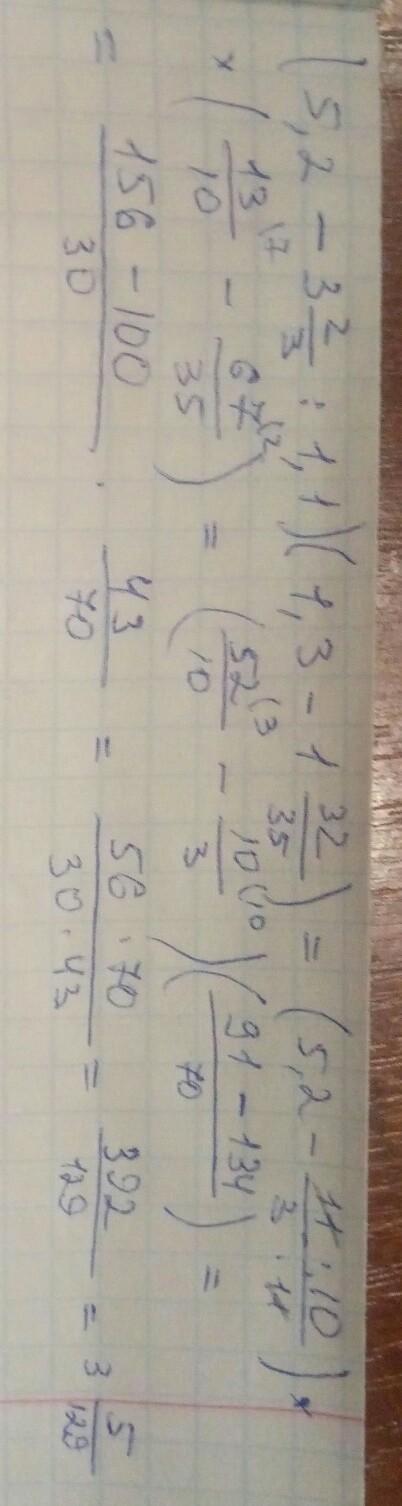 (5,2 - 3 2/3 : 1,1)(1,3 - 1 32/35) = (5,2 - 11 · 10 / 3 · 11) ×
× (13/10 (7 - 67/35 (2) = (52/10 (3 - 10/3 (10)(91 - 134 / 70) =
= 156 - 100 / 30 · 43/70 = 56 · 70 / 30 · 43 = 392/129 = 3 5/129